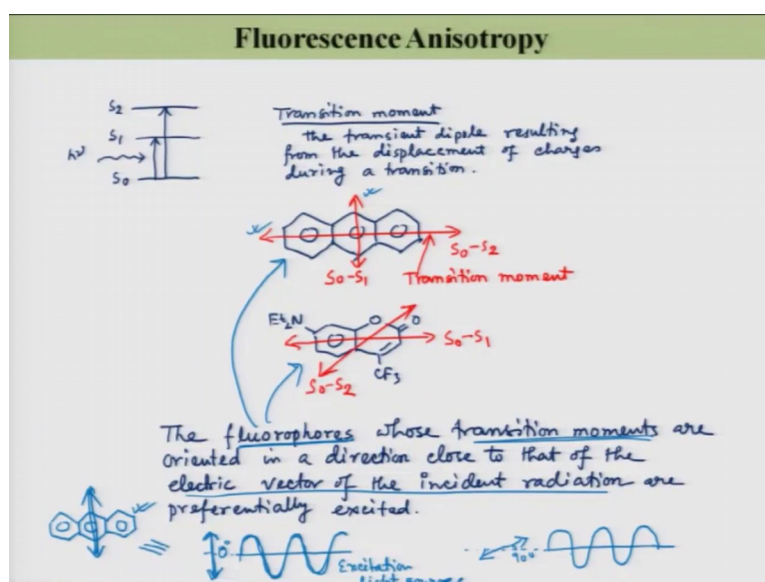 Fluorescence Anisotropy
S2
S1
hν
S0
Transition moment
the transient dipole resulting
from the displacement of charges
during a transition.
S0-S2
S0-S1
Transition moment
Et2N
O
O
S0-S1
CF3
S0-S2
The fluorophores whose transition moments are
oriented in a direction close to that of the
electric vector of the incident radiation are
preferentially excited.
0°
90°
Excitation
light source